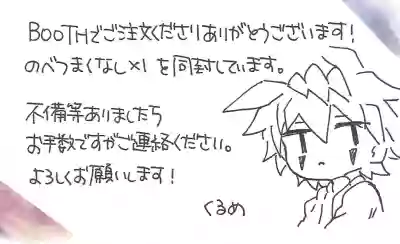 BOOTHでご注文くださりありがとうございます！
のべつまくなし×1 を同封しています。
不備等ありましたら
お手数ですがご連絡ください。
よろしくお願いします！
くるめ